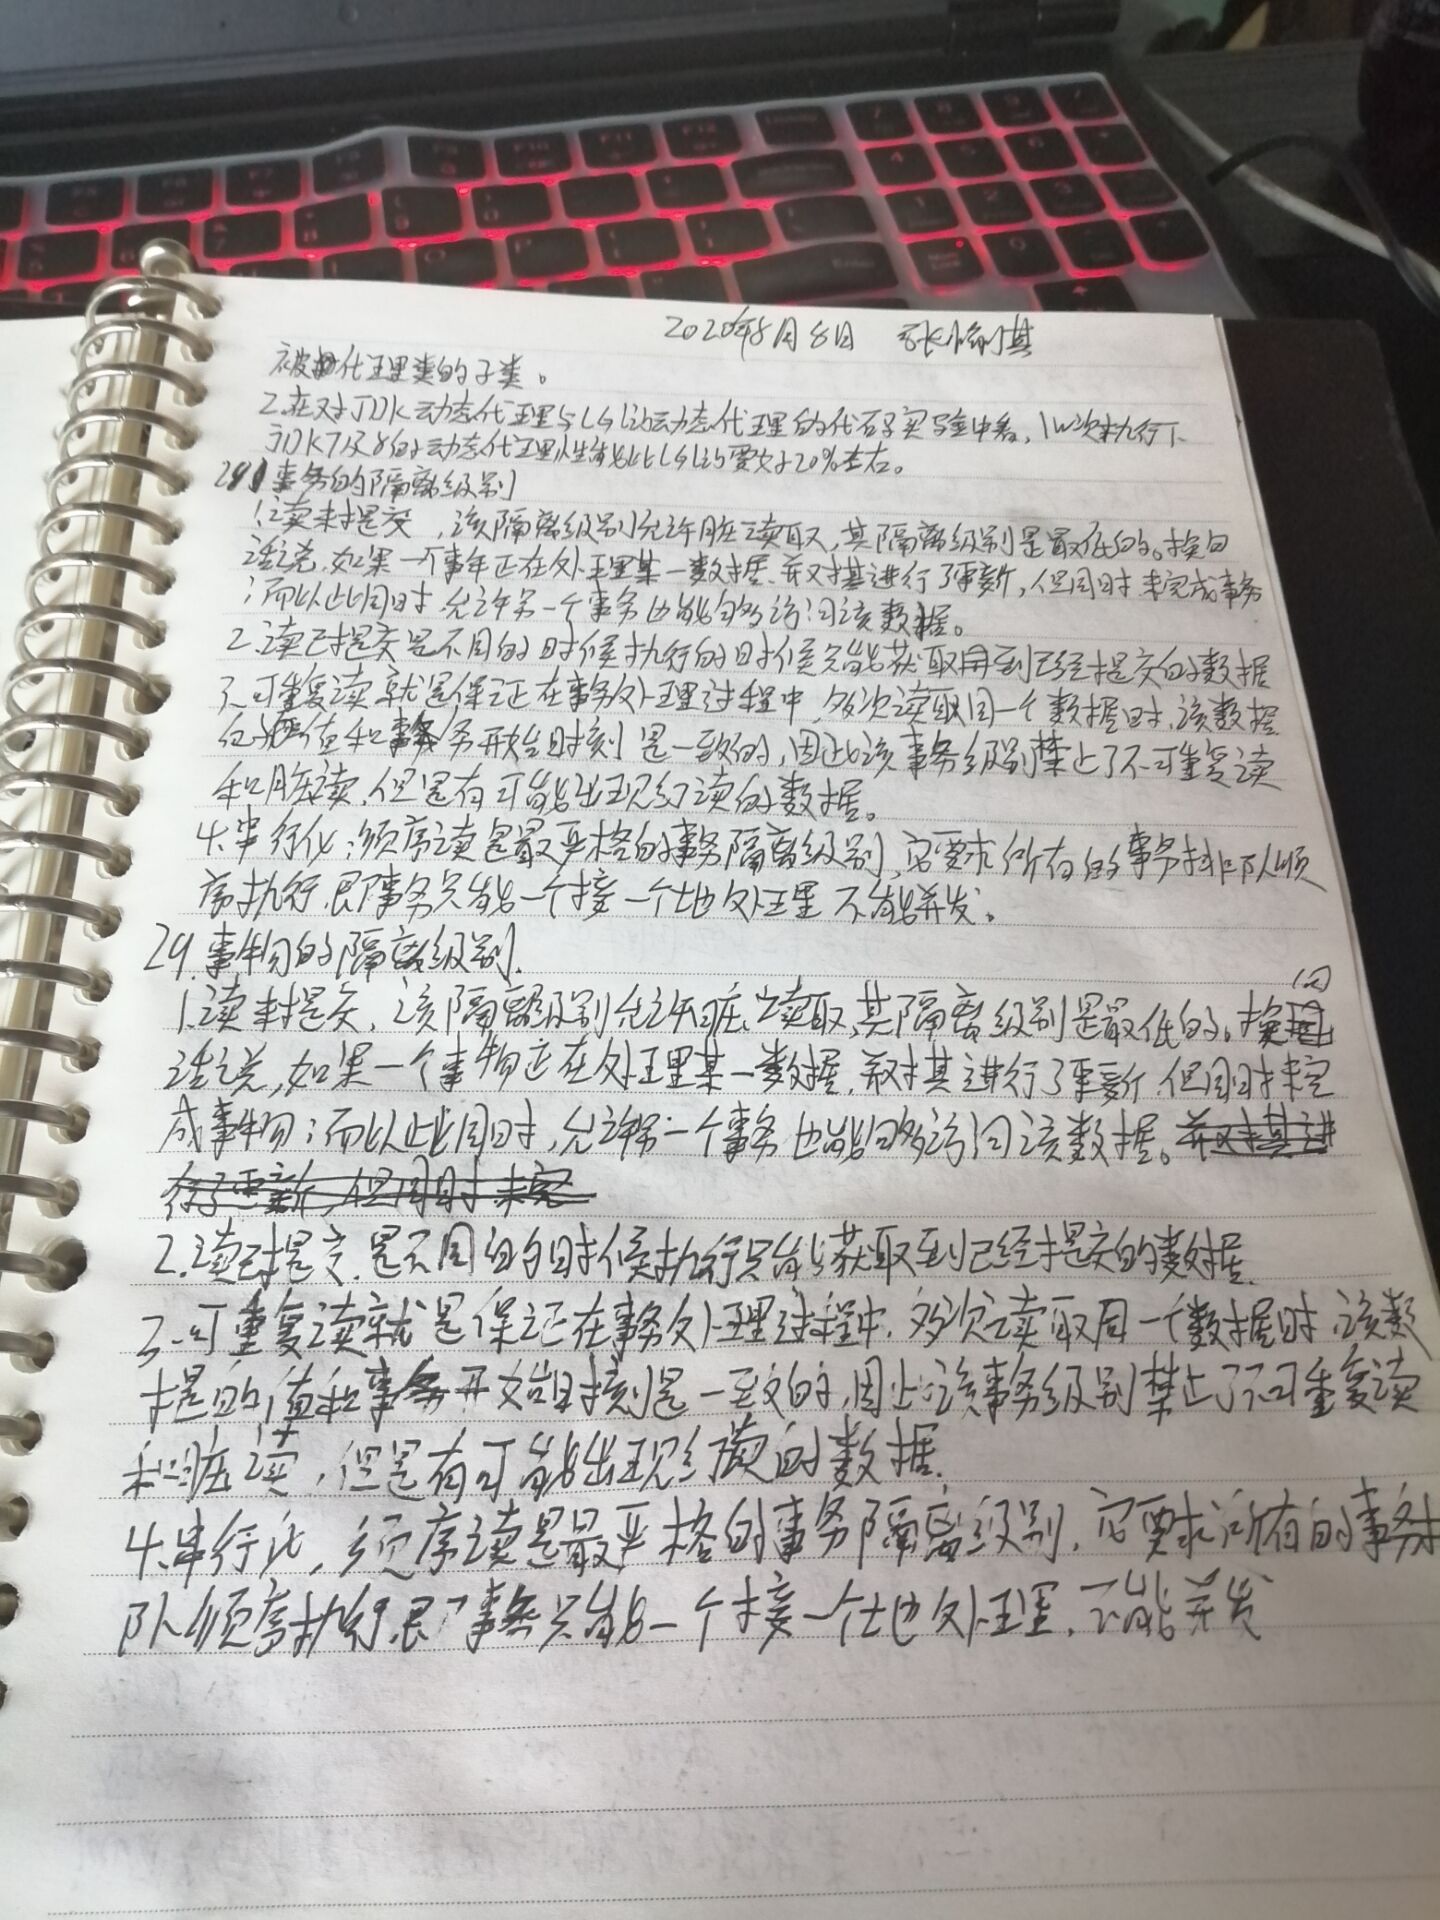 2020年8月8日 张
被代理类的子类。
2.在对JDK动态代理与CGlib动态代理的代码实验中看,1W次执行下
JDK7及8的动态代理性能比CGlib要好20%左右。
29、事务的隔离级别
1.读未提交,该隔离级别允许脏读取,其隔离级别是最低的。换句
话说,如果一个事务正在处理某一数据、并对其进行了更新,但同时未完成事务
;而以此同时,允许另一个事务也能够访问该数据。
2.读已提交是不同的时候执行的时候只能获取到已经提交的数据
3.可重复读就是保证在事务处理过程中,多次读取同一个数据时,该数据
的值和事务开始时刻是一致的,因此该事务级别禁止了不可重复读
和脏读,但是有可能出现幻读的数据。
4.串行化:顺序读是最严格的事务隔离级别,它要求所有的事务排队顺
序执行,即事务只能一个接一个地处理不能并发。
29.事物的隔离级别.
1.读未提交,该隔离级别允许脏读取,其隔离级别是最低的。换句
话说,如果一个事物正在处理某一数据,并对其进行了更新,但同时未完
成事物;而以此同时,允许另一个事务也能够访问该数据。并对其进
行了更新,但同时未完
2.读已提交.是不同的时候执行只能获取到已经提交的数据.
3.可重复读就是保证在事务处理过程中,多次读取同一个数据时,该数
据的值和事务开始时刻是一致的,因此该事务级别禁止了不可重复读
和脏读,但是有可能出现幻读的数据.
4.串行化,顺序读是最严格的事务隔离级别,它要求所有的事务
队顺序执行,即事务只能一个接一个地处理,不能并发